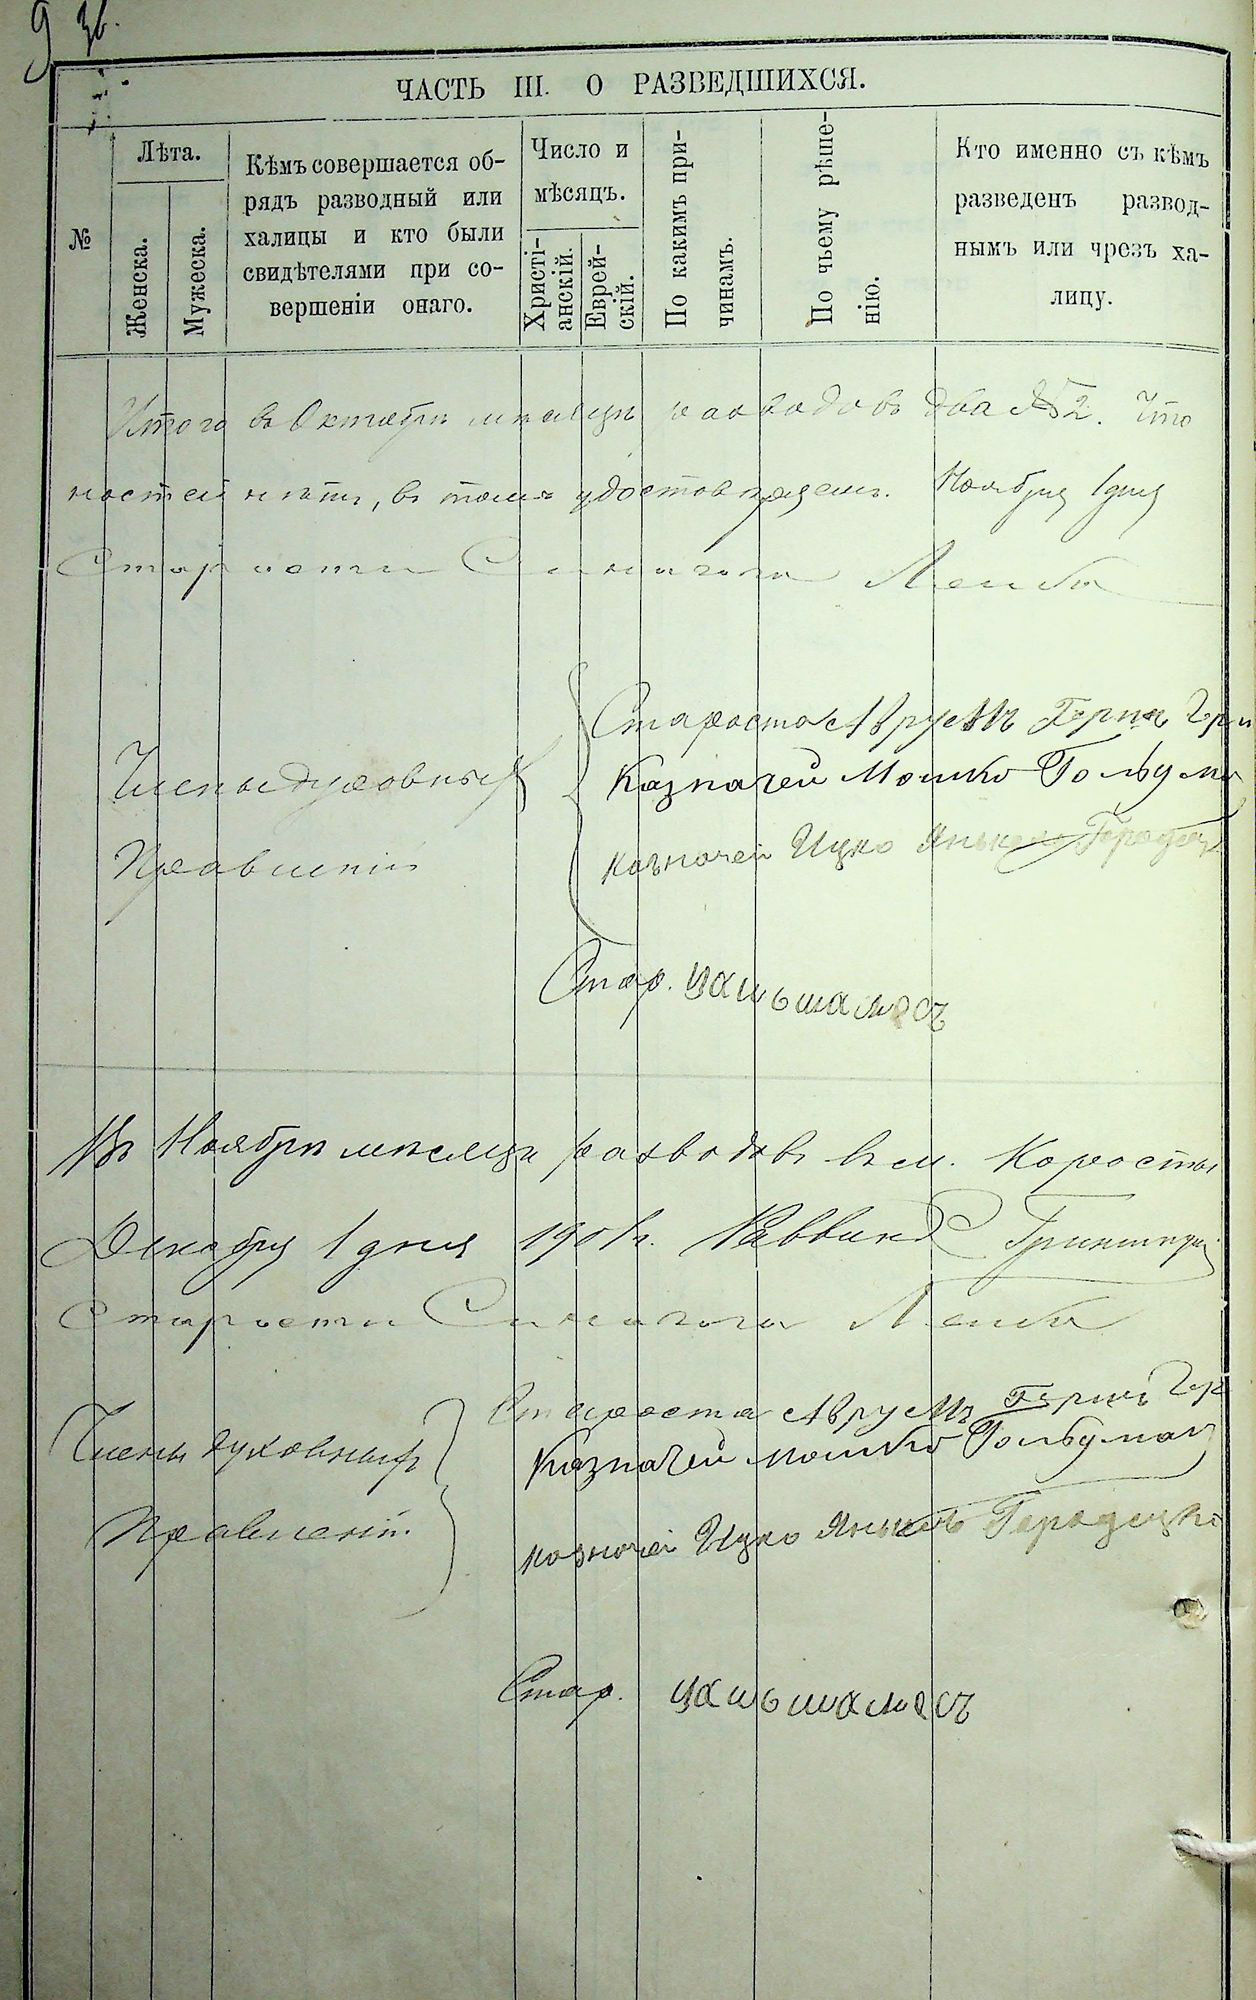 9 зв.
ЧАСТЬ III. О РАЗВЕДШИХСЯ.
№
Лѣта.
Женска.
Мужеска.
Кѣмъ совершается об-
рядъ разводный или
халицы и кто были
свидѣтелями при со-
вершеніи онаго.
Число и
мѣсяцъ.
Христі-
анскій.
Еврей-
скій.
По какимъ при-
чинамъ.
По чьему рѣше-
нію.
Кто именно съ кѣмъ
разведенъ развод-
нымъ или чрезъ ха-
лицу.
Итого въ Октябрѣ мѣсяцѣ разводовъ два №2. Что
ностей нѣтъ, въ томъ удостовѣряемъ. Ноября 1 дня
Старости Синагоги Лейба
Члены духовныхъ
Правленій
Староста Аврумъ Герцъ
Казначей Мошко Гольдма
казначей Ицко Янкель Городец
Стар.
Въ Ноябрѣ мѣсяцѣ разводовъ въ м. Коросты
Декабря 1 дня 1901 г. Раввинъ
Старости Синагоги Лейба
Члены духовныхъ
Правленій.
Староста Аврумъ Герцъ
Казначей Мошко Гольдман
казначей Ицко Янкель Городецкі
Стар.